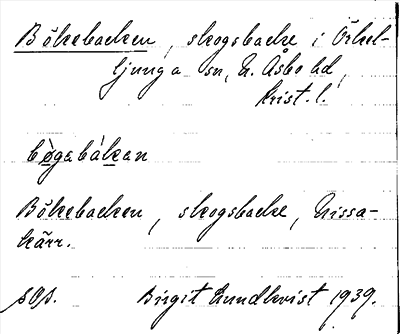 Bökebacken, skogsbacke i Örkel-
ljunga sn, N. Åsbo hd,
Krist. l.
bøgabákan
Bökebacken, skogsbacke, Nissa-
kärr.
sOs. Birgit Lundkvist 1939.